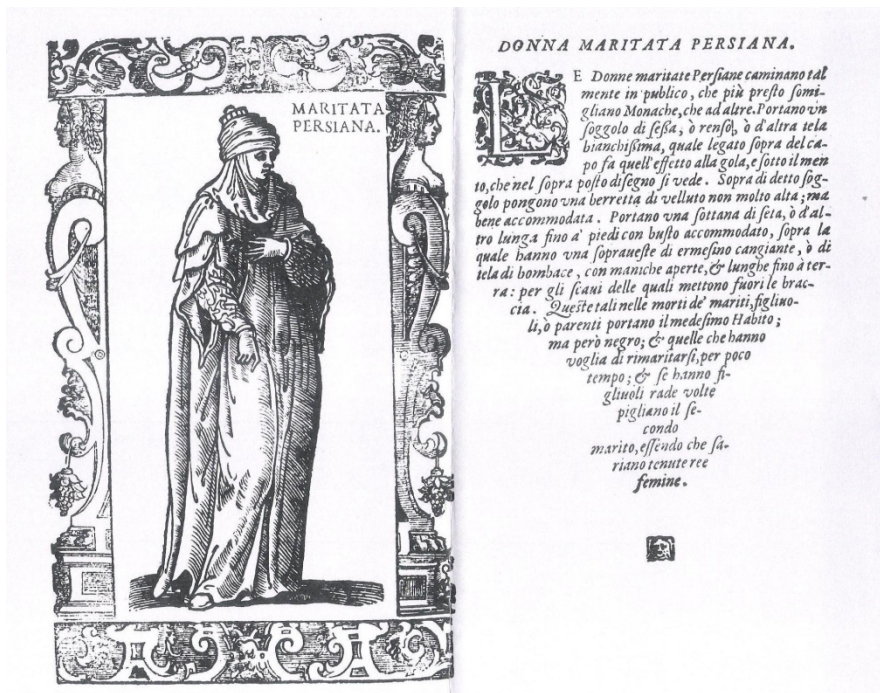 MARITATA
PERSIANA.
DONNA MARITATA PERSIANA.
LE Donne maritate Perſiane caminano tal
mente in publico, che più preſto ſomi-
gliano Monache, che ad altre. Portano vn
ſoggolo di ſeßa, ò renſo, ò d'altra tela
bianchißima, quale legato ſopra del ca-
po fa quell'effetto alla gola, e ſotto il men
to, che nel ſopra poſto diſegno ſi vede. Sopra di detto ſog-
golo pongono vna berretta di velluto non molto alta; ma
bene accommodata. Portano vna ſottana di ſeta, ò d'al-
tro lunga fino a' piedi con buſto accommodato, ſopra la
quale hanno vna ſopraueſte di ermeſino cangiante, ò di
tela di bombace, con maniche aperte, & lunghe fino à ter-
ra: per gli ſcaui delle quali mettono fuori le brac-
cia. Queſte tali nelle morti de' mariti, figliuo-
li, ò parenti portano il medeſimo Habito;
ma però negro; & quelle che hanno
voglia di rimaritarſi, per poco
tempo; & ſe hanno fi-
gliuoli rade volte
pigliano il ſe-
condo
marito, eſſendo che ſa-
riano tenute ree
femine.